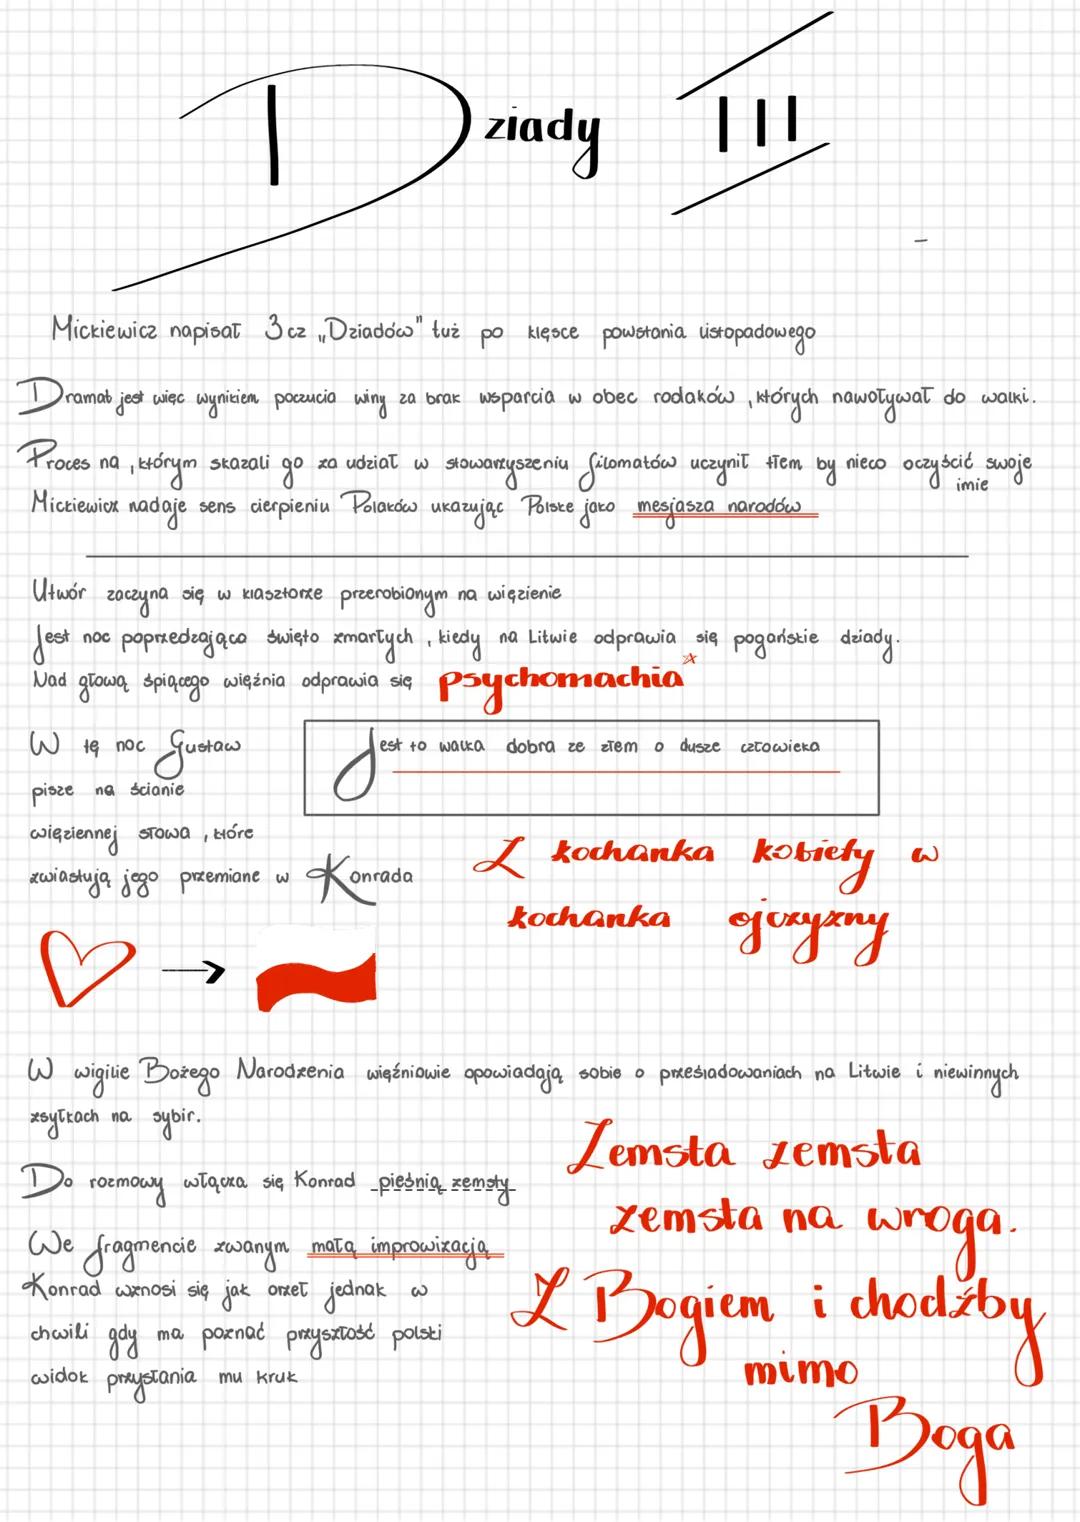 Dziady III
Mickiewicz napisał 3 cz „Dziadów" tuż po klęsce powstania listopadowego
Dramat jest więc wynikiem poczucia winy za brak wsparcia w obec rodaków , których nawoływał do walki.
Proces na , którym skazali go za udział w stowarzyszeniu filomatów uczynił tłem by nieco oczyścić swoje
imie
Mickiewicz nadaje sens cierpieniu Polaków ukazując Polske jako mesjasza narodów
Utwór zaczyna się w klasztorze przerobionym na więzienie
Jest noc poprzedzająca święto zmarłych , kiedy na Litwie odprawia się pogańskie dziady.
Nad głową śpiącego więźnia odprawia się psychomachia*
W tę noc Gustaw
pisze na ścianie
więziennej słowa , które
zwiastują jego przemiane w Konrada
Jest to walka dobra ze złem o dusze człowieka
Z kochanka kobiety w
kochanka ojczyzny
W wigilie Bożego Narodzenia więźniowie opowiadają sobie o prześladowaniach na Litwie i niewinnych
zsyłkach na sybir.
Do rozmowy włącza się Konrad pieśnią zemsty
We fragmencie zwanym małą improwizacją
Konrad wznosi się jak orzeł jednak w
chwili gdy ma poznać przyszłość polski
widok przysłania mu kruk
Zemsta zemsta
zemsta na wroga.
Z Bogiem i chodźby
mimo
Boga